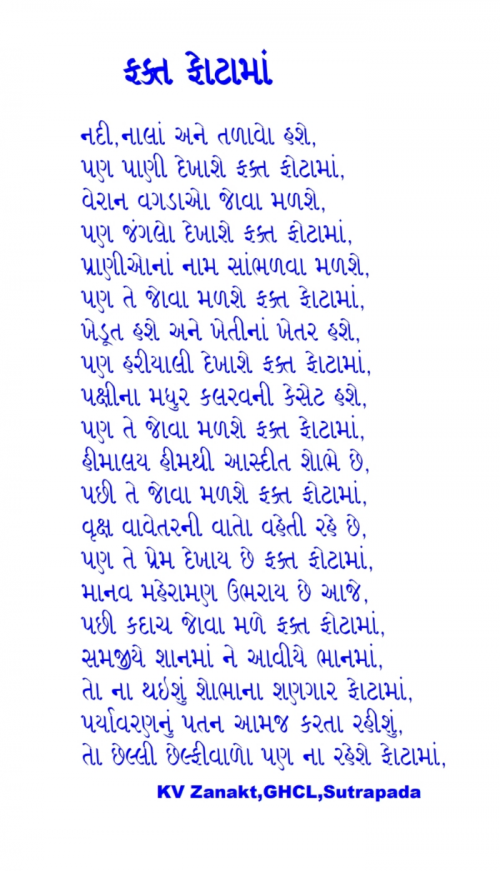 ફક્ત ફોટામાં
નદી,નાલાં અને તળાવો હશે,
પણ પાણી દેખાશે ફક્ત ફોટામાં,
વેરાન વગડાઓ જોવા મળશે,
પણ જંગલો દેખાશે ફક્ત ફોટામાં,
પ્રાણીઓનાં નામ સાંભળવા મળશે,
પણ તે જોવા મળશે ફક્ત ફોટામાં,
ખેડૂત હશે અને ખેતીનાં ખેતર હશે,
પણ હરીયાલી દેખાશે ફક્ત ફોટામાં,
પક્ષીના મધુર કલરવની કેસેટ હશે,
પણ તે જોવા મળશે ફક્ત ફોટામાં,
હીમાલય હીમથી આસ્દીત શોભે છે,
પછી તે જોવા મળશે ફક્ત ફોટામાં,
વૃક્ષ વાવેતરની વાતો વહેતી રહે છે,
પણ તે પ્રેમ દેખાય છે ફક્ત ફોટામાં,
માનવ મહેરામણ ઉભરાય છે આજે,
પછી કદાચ જોવા મળે ફક્ત ફોટામાં,
સમજીયે શાનમાં ને આવીયે ભાનમાં,
તો ના થઇશું શોભાના શણગાર ફોટામાં,
પર્યાવરણનું પતન આમજ કરતા રહીશું,
તો છેલ્લી છેલ્ફીવાળો પણ ના રહેશે ફોટામાં,
KV Zanakt,GHCL,Sutrapada